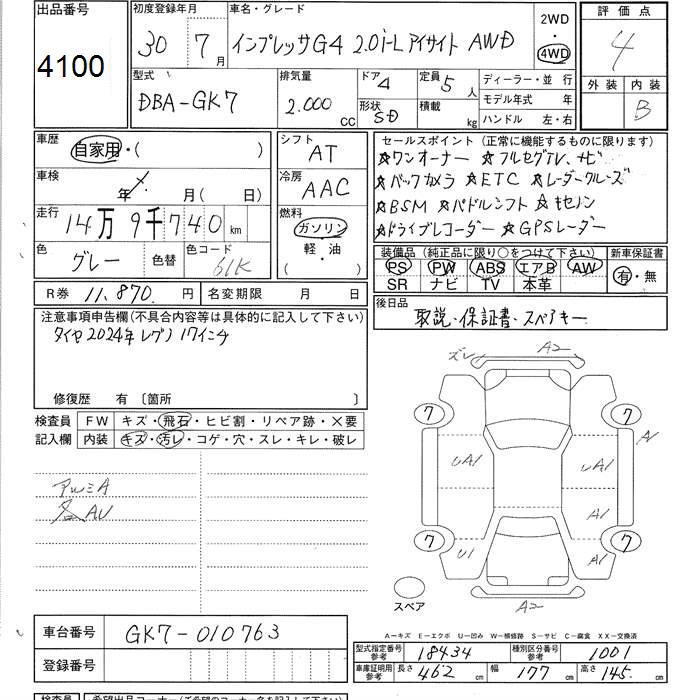 出品番号
4100
初度登録年月
30 年 7 月
車名・グレード
インプレッサG4 2.0i-L アイサイト AWD
2WD
・
4WD
評価点
4
外装 内装
B
型式
DBA-GK7
排気量
2.000 CC
ドア 4
形状 SD
定員 5 人
積載 kg
ディーラー・並行
モデル年式 年
ハンドル 左・右
車歴
自家用・( )
車検
年 月( 日)
走行
14万9千740km
色
グレー 色替
色コード
61K
シフト
AT
冷房
AAC
燃料
ガソリン
・
軽・油
( )
セールスポイント(正常に機能するものに限ります)
☆ワンオーナー ☆フルセグTV、ナビ
☆バックカメラ ☆ETC ☆レーダークルーズ
☆BSM ☆パドルシフト ☆キセノン
☆ドライブレコーダー ☆GPSレーダー
装備品(純正品に限り○をつけて下さい)
PS PW ABS エアB AW
SR ナビ TV 本革
新車保証書
有・無
R券 11,870. 円
名変期限 月 日
後日品
取説・保証書・スペアキー
注意事項申告欄(不具合内容等は具体的に記入して下さい)
タイヤ2024年レグノ 17インチ
修復歴 有〔箇所 〕
検査員
記入欄
FW キズ・飛石・ヒビ割・リペア跡・X要
内装 キズ・汚レ・コゲ・穴・スレ・キレ・破レ
アルミA
各AU
ズレ A2
7 7
A1
UA1 UA1
A1
7 7
U1 A1
スペア
A2
A…キズ E…エクボ U…凹み W…補修跡 S…サビ C…腐食 XX…交換済
車台番号
GK7-010763
登録番号
型式指定番号
参考
18434
種別区分番号
参考
1001
車庫証明用
参考
長さ 462 cm
幅 177 cm
高さ 145 cm
検査員
希望出品コーナー(ご希望のコーナー名を記入下さい)